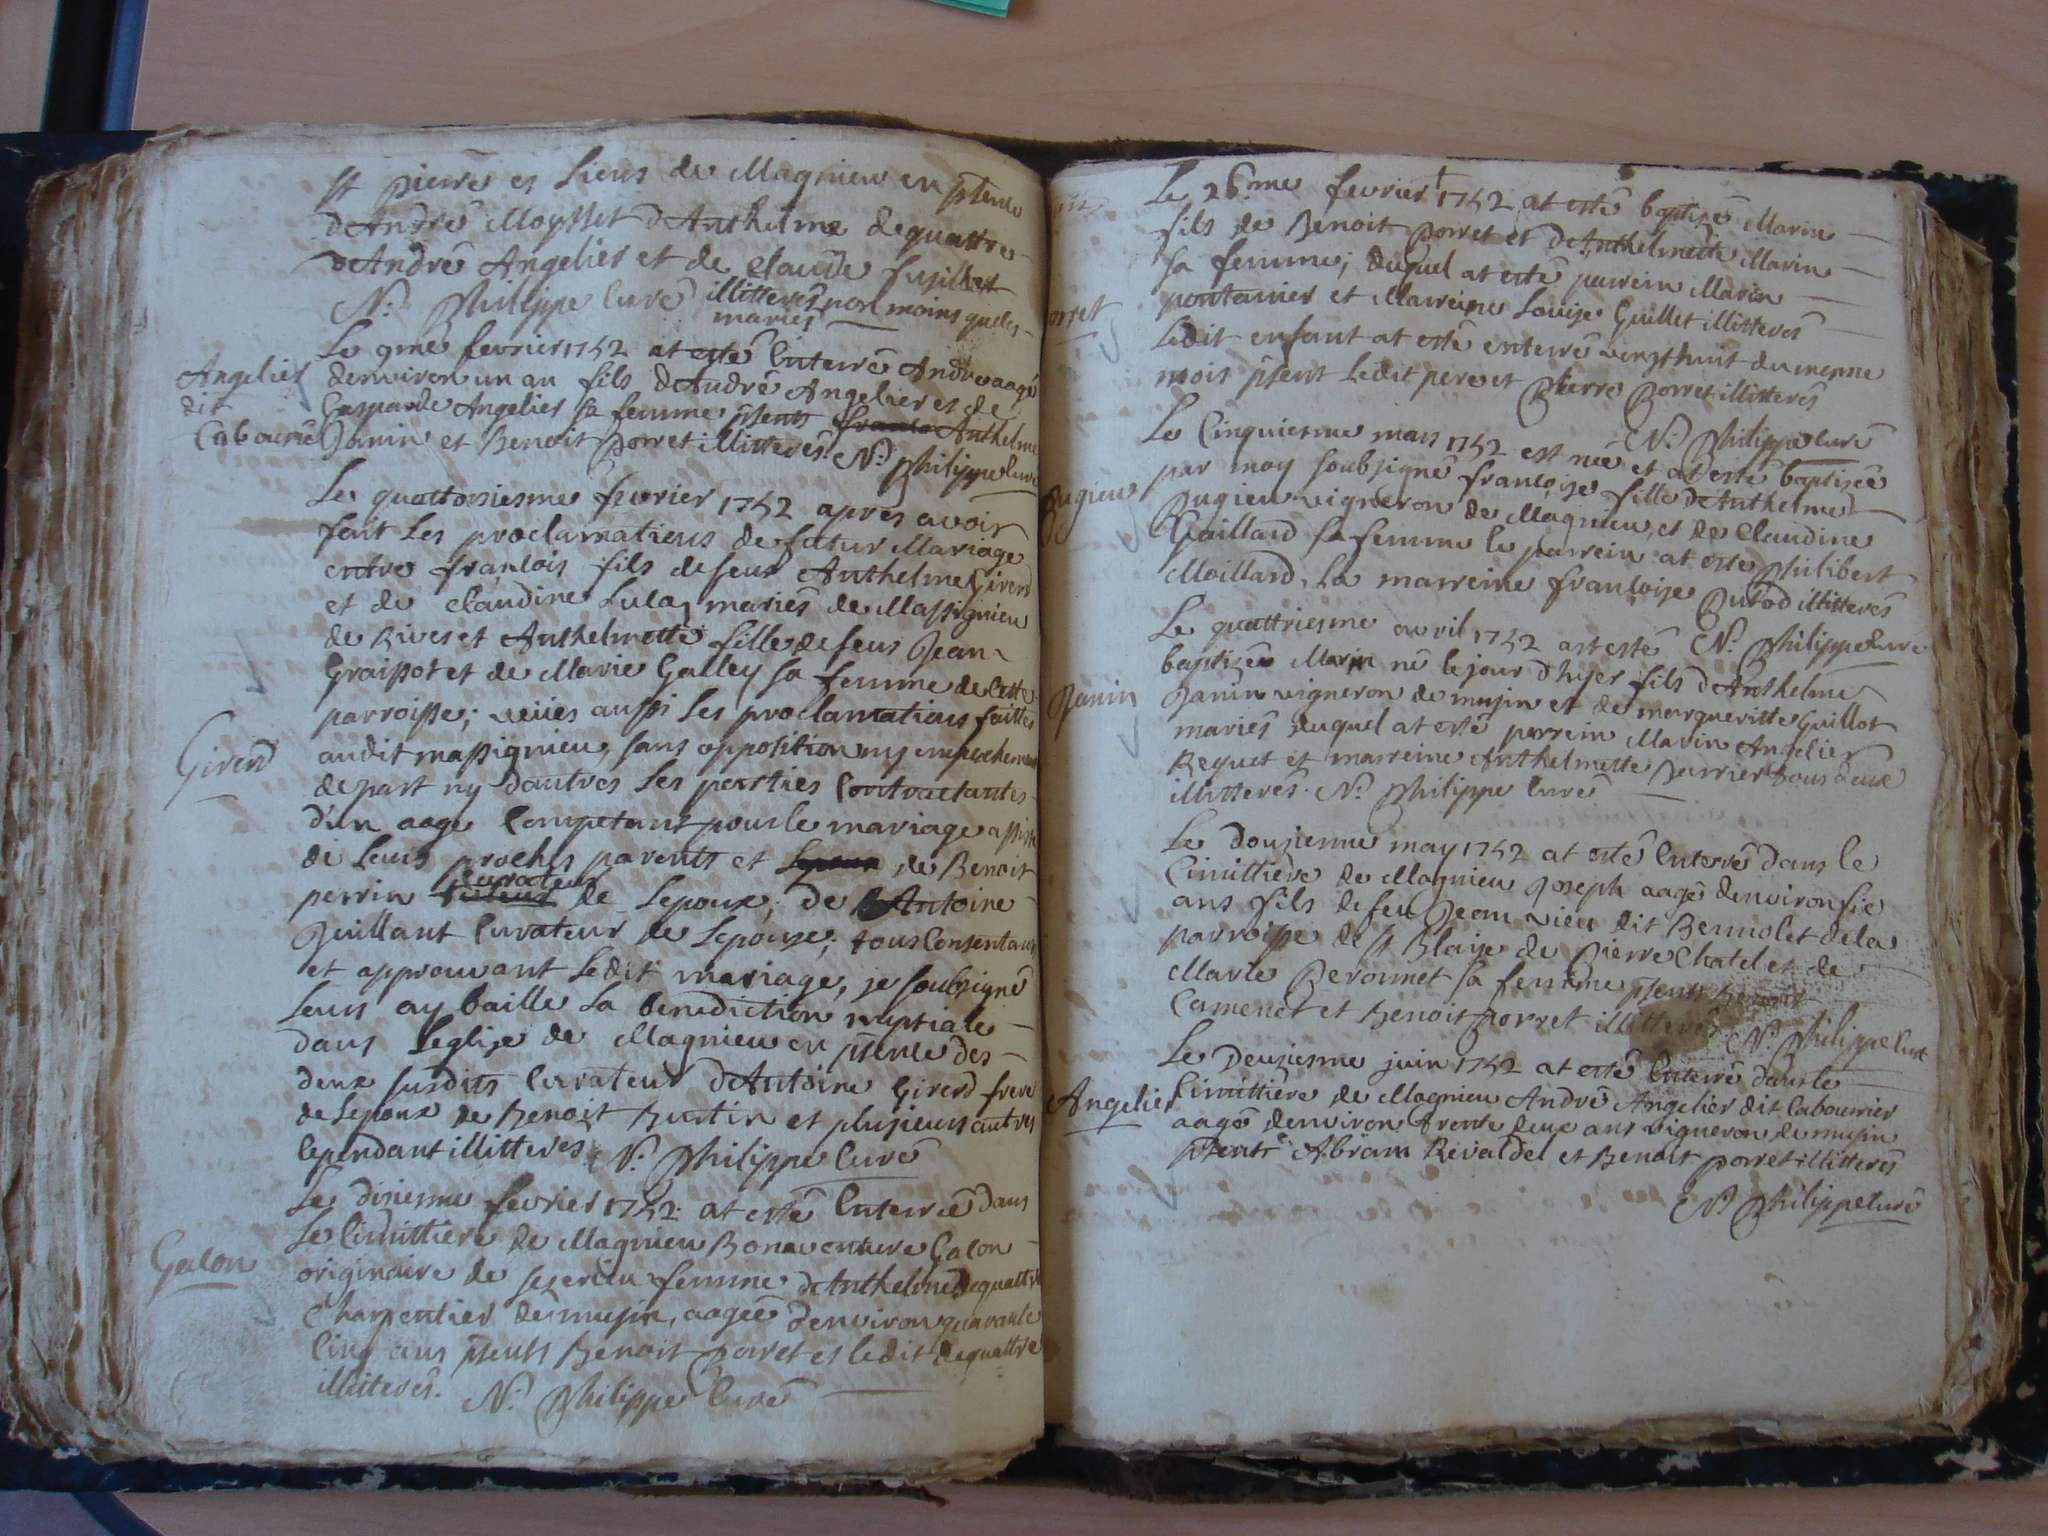 st pierre es liens de Magnieu en pñce
d'André Moysset d'Anthelme de quattre
d'André Angelier et de Claude fusillet
N. Philippe curé illitterés non moins que les
mariés
Le 9me fevrier 1752 at esté enterré André aagé
Angelier
dit
Cabourié
denviron un an fils d'André Angelier et de
Gasparde Angelier sa femme pñts Anthelme
Janin et Benoit Porret illitterés N. Philippe curé
Le quattorsiesme fevrier 1752 apres avoir
fait les proclamations de futur Mariage
entre françois fils de feux Anthelme Girerd
et de claudine Lulaz mariés de Massignieu
de Rives et Anthelmette fille de feus Jean
Graissot et de Marie Galley sa femme de cette
parroisse; veües aussi les proclamations faittes
Girerd
audit massignieu, sans opposition ny empechement
de part ny d'autres les parties contractantes
d'un aage competant pour le mariage assistés
de leurs proches parents et de Benoit
perrin curateur de Lepoux, de Antoine
Juillant curateur de Lepouse; tous consentans
et approuvant ledit mariage, je soubsigné
leurs ay baillé la benediction nuptiale
dans leglise de Magnieu en pñce des
deux susdits curateur d'Antoine Girerd frere
de Lepoux de Benoit Burtin et plusieurs autres
cependant illitteres N. Philippe curé
Le disiesme fevrier 1752 at esté enterrée dans
Galon
Le cimittiere de Magnieu Bonaventure Galon
originaire de seserieu femme d'Anthelme Dequattre
charpentier de musin, aagée denviron quarante
cinq ans pñts Benoit Porret et ledit Dequattre
illiterés. N. Philippe curé
Le 26.me fevrier 1752 at esté baptisé Marin
fils de Benoit Porret et d'Anthelmette Marin
sa femme; duquel at esté parrein Marin
orret
pontannier et Marreine Louise Guillet illitterés
Ledit enfant at esté enterré vengthuit du mesme
mois pñts Ledit pere et Pierre Porret illitterés
N. Philippe curé
Le cinquiesme mars 1752 est née et at esté baptisée
par moy soubsigné françoise fille d'Anthelme
Jugieu
Jugieu vigneron de Magnieu, et de claudine
Gaillard sa femme le parrein at esté Philibert
Moillard, la marreine françoise Putod illitterés
N. Philippe curé
Le quattriesme avril 1752 at esté
baptisé Marin né le jour d'hyer fils d'Anthelme
Janin
Janin vigneron de musin et de margueritte Guillot
mariés duquel at esté parrein Marin Angelier
Requet et marreine Anthelmette Perrier tous deux
illitterés. N. Philippe curé
Le Dousiemme may 1752 at esté enterré dans le
Cimittiere de Magnieu Joseph aagé denviron sic
ans fils de feu Jean vieu dit Bennolet de la
parroisse de st Blaise de Pierre Chatel et de
Marie Peronnet sa femme pñts Benoit
Camenet et Benoit Porret illitterés N. Philippe curé
Le Deusiesme juin 1752 at esté enterré dans le
Angelier
Cimittiere de Magnieu André Angelier dit Cabourrier
aagé denviron trente deux ans vigneron de musin
pñts Abram Rivaldel et Benoit porret illitterés
N. Philippe curé